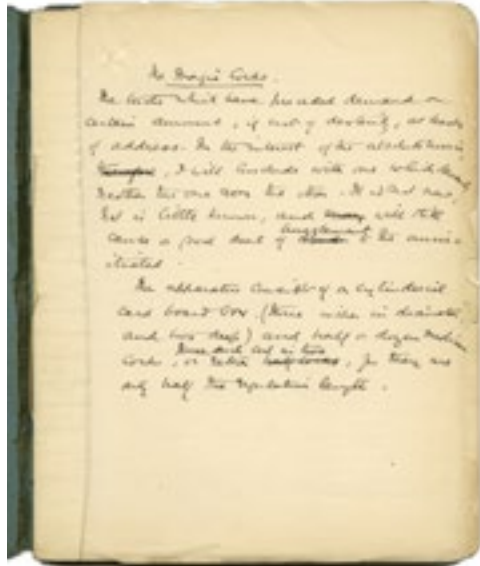 The Magic Cords.
The tricks which have preceded demand a
certain amount, if not of dexterity, at least
of address. In the interest of the absolute
, I will conclude with one which
neither the one nor the other. It is not new,
but is little known, and will still
cause a good deal of to the
-itiated.
The apparatus consists of a cylindrical
card board box (three inches in diameter
and two deep) and half a dozen
cords, or rather three such cut in two, for they are
only half the regulation length.